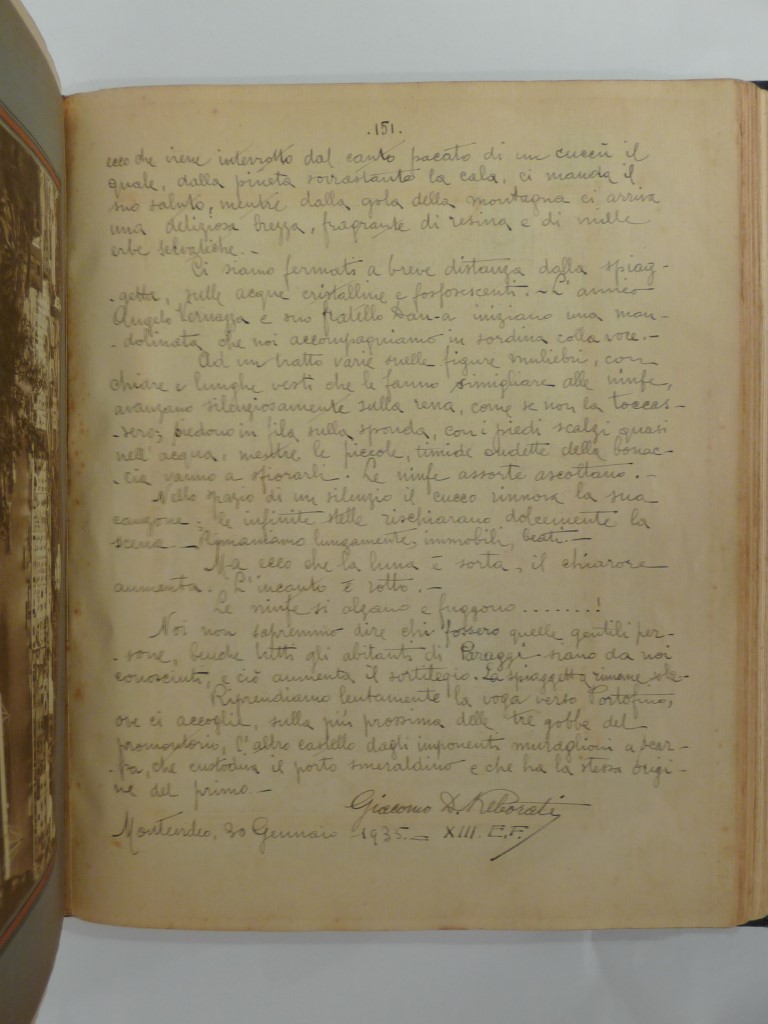 . 151 .
ecco che viene interrotto dal canto pacato di un cuccù il
quale, dalla pineta sorrastante la cala, ci manda il
suo saluto, mentre dalla gola della montagna ci arriva
una deliziosa brezza, fragrante di resina e di mille
erbe selvatiche. -
Ci siamo fermati a breve distanza dalla spiag-
- getta, sulle acque cristalline e fosforescenti. - L'amico
Angelo Vernazza e suo fratello iniziano una man-
- dolinata che noi accompagniamo in sordina colla voce. -
Ad un tratto varie snelle figure muliebri, con
chiare e lunghe vesti che le fanno simigliare alle ninfe,
avanzano silenziosamente sulla rena, come se non la toccas-
- sero; siedono in fila sulla sponda, con i piedi scalzi quasi
nell'acqua, mentre le piccole, timide ondette della bonac-
- cia vanno a sfiorarli. Le ninfe assorte ascoltano. -
Nello spazio di un silenzio il cucco rinnova la sua
canzone; le infinite stelle rischiarano dolcemente la
scena - Rimaniamo lungamente, immobili, beati. -
Ma ecco che la luna è sorta, il chiarore
aumenta. L'incanto è rotto. -
Le ninfe si alzano e fuggono ........!
Noi non sapremmo dire chi fossero quelle gentili per-
- sone, benchè tutti gli abitanti di Paraggi siano da noi
conosciuti, e ciò aumenta il sortilegio. La spiaggetta rimane sola -
Riprendiamo lentamente la voga verso Portofino,
ove ci accoglie, sulla più prossima delle tre gobbe del
promontorio, l'altro castello dagli imponenti muraglioni a scar-
- pa, che custodiva il porto smeraldino e che ha la stessa origi-
ne del primo. -
Giacomo D. Reborati
Montevideo, 30 Gennaio 1935. - XIII. E.F.